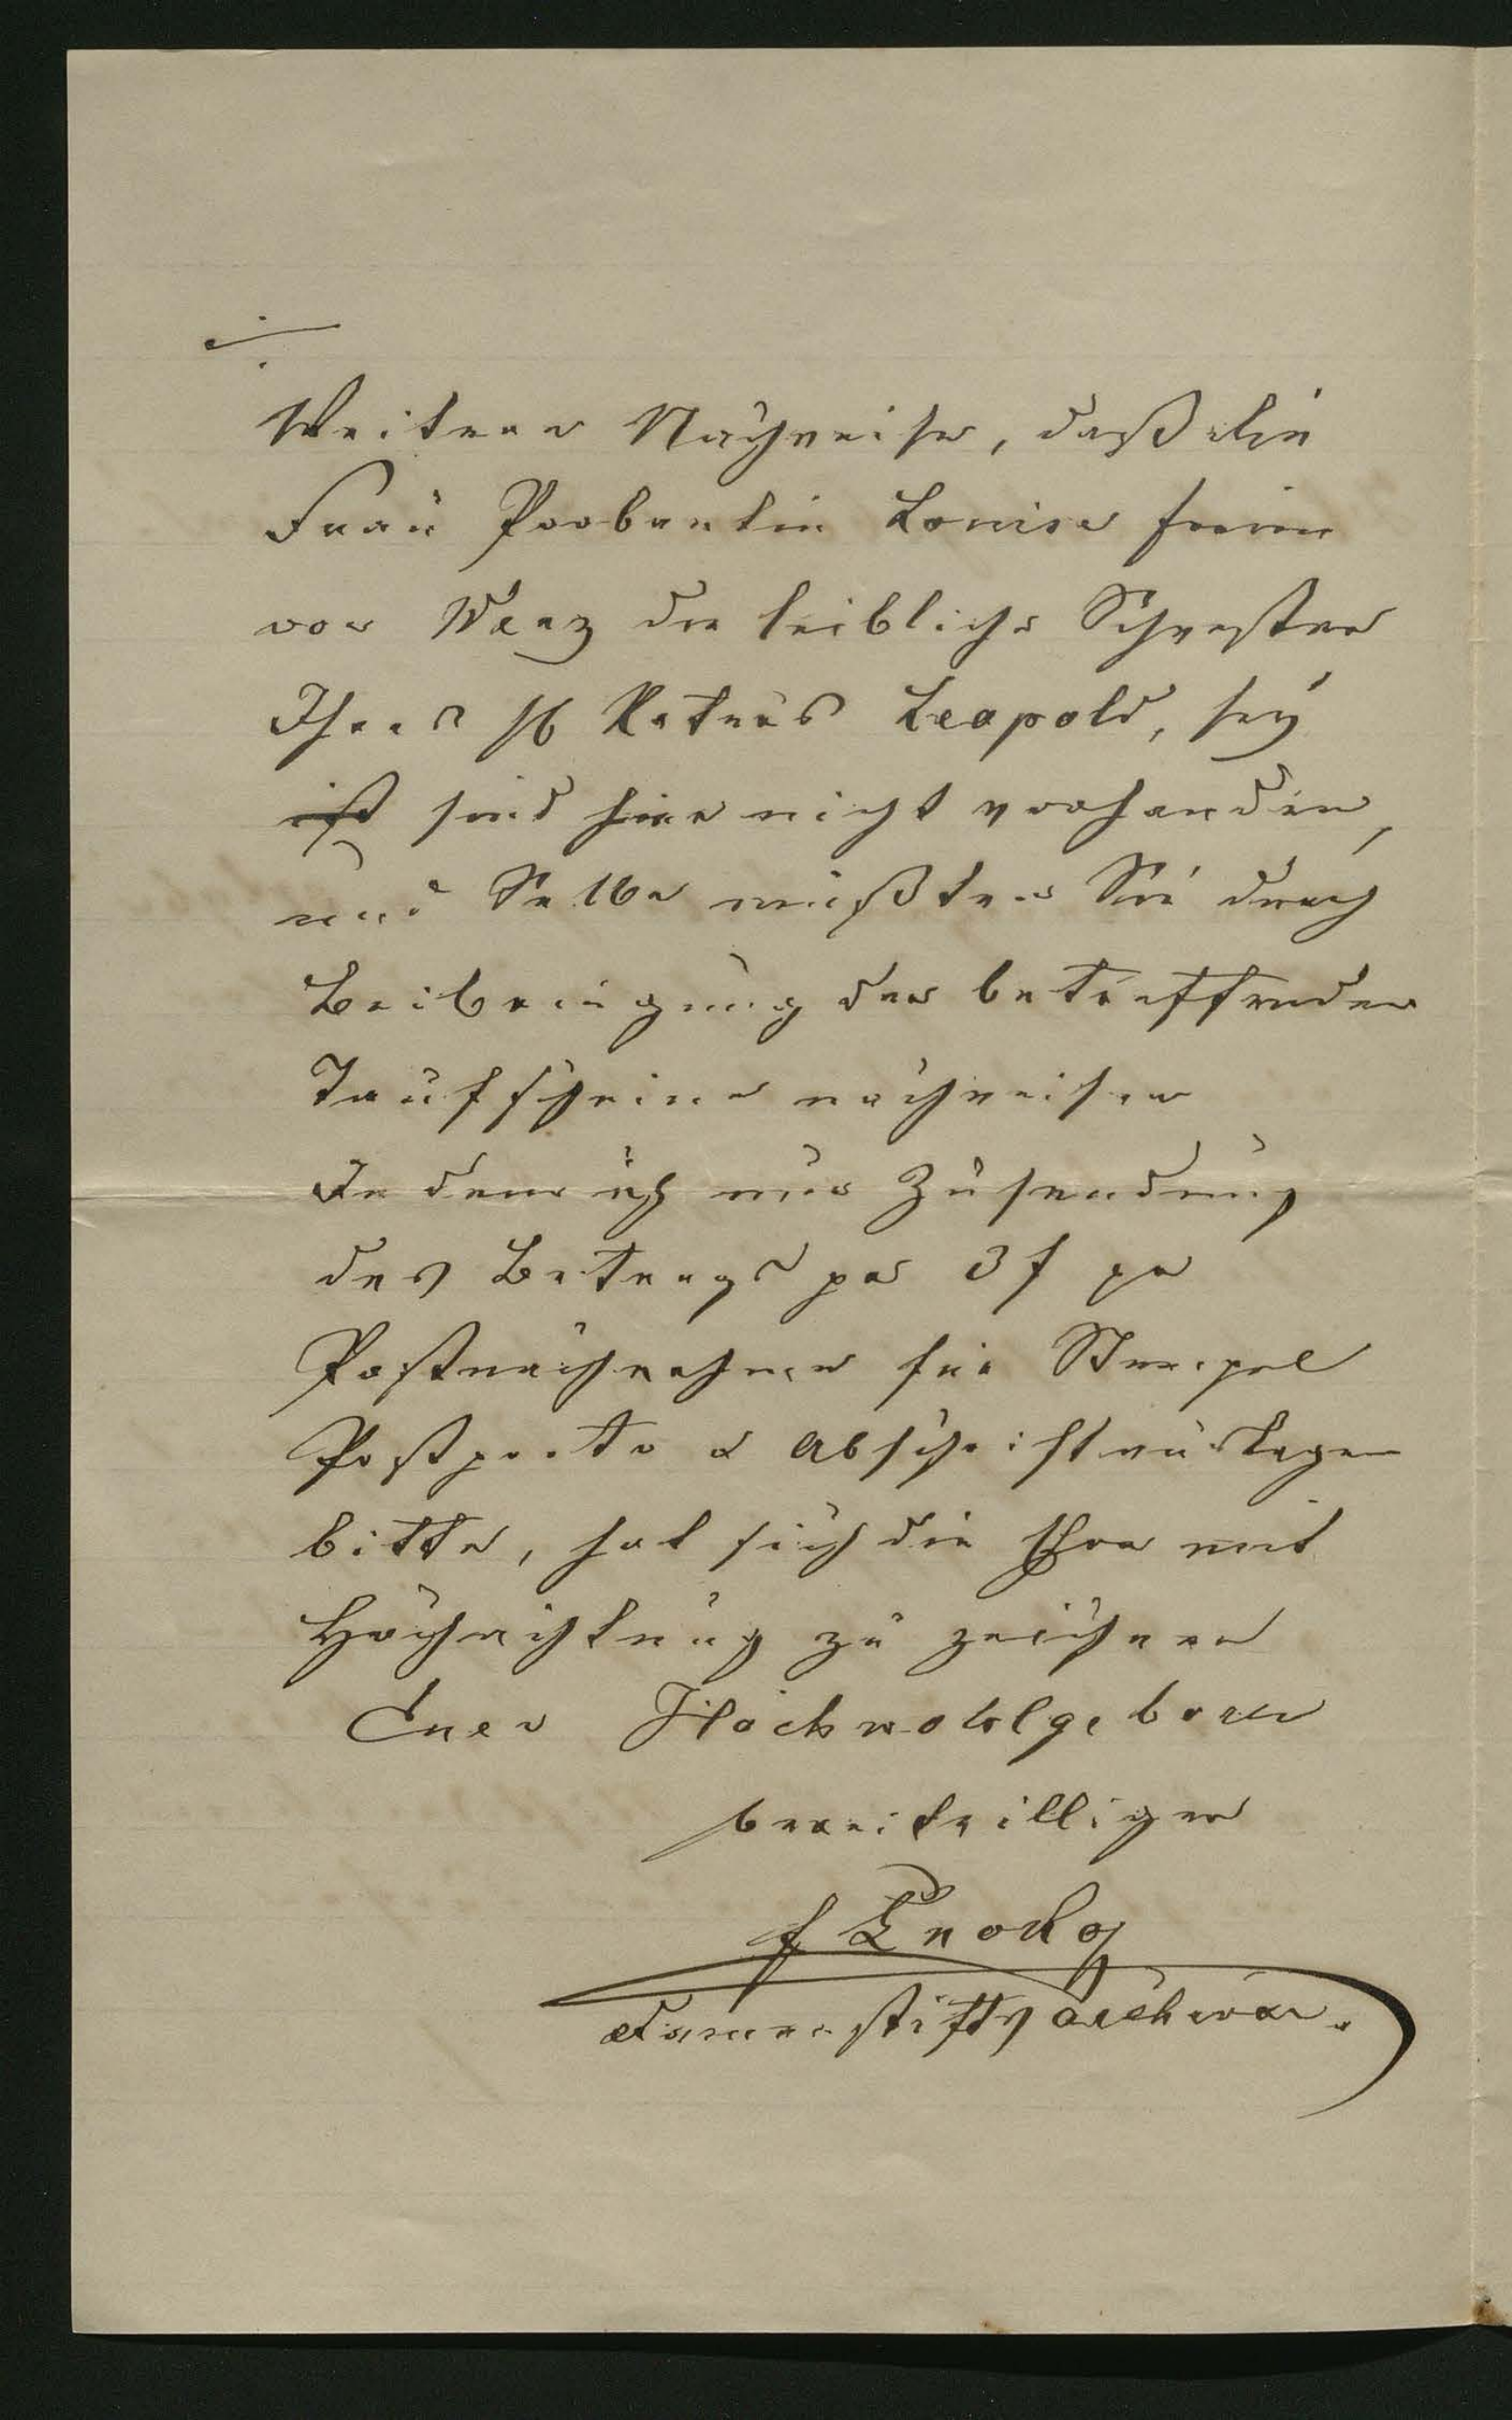 ./.
Weitere Nachweise, daß die
Frau Probantin Louise freiin
von Wenz die leibliche Schwester
Ihres H Vaters Leopold, sey
ist sind hier nicht vorhanden,
und Selbe müßten Sie durch
Beibringung der betreffenden
Taufscheine nachweisen
Indem ich um Zusendung
des Betrags per 3 f per
Postnachnahme für Stempel
Postporto & Abschriftauslagen
bitte, hat sich die Ehre mit
Hochachtung zu zeichnen
Euer Hochwohlgeboren
bereitwilliger
Damenstiftsarchivar.